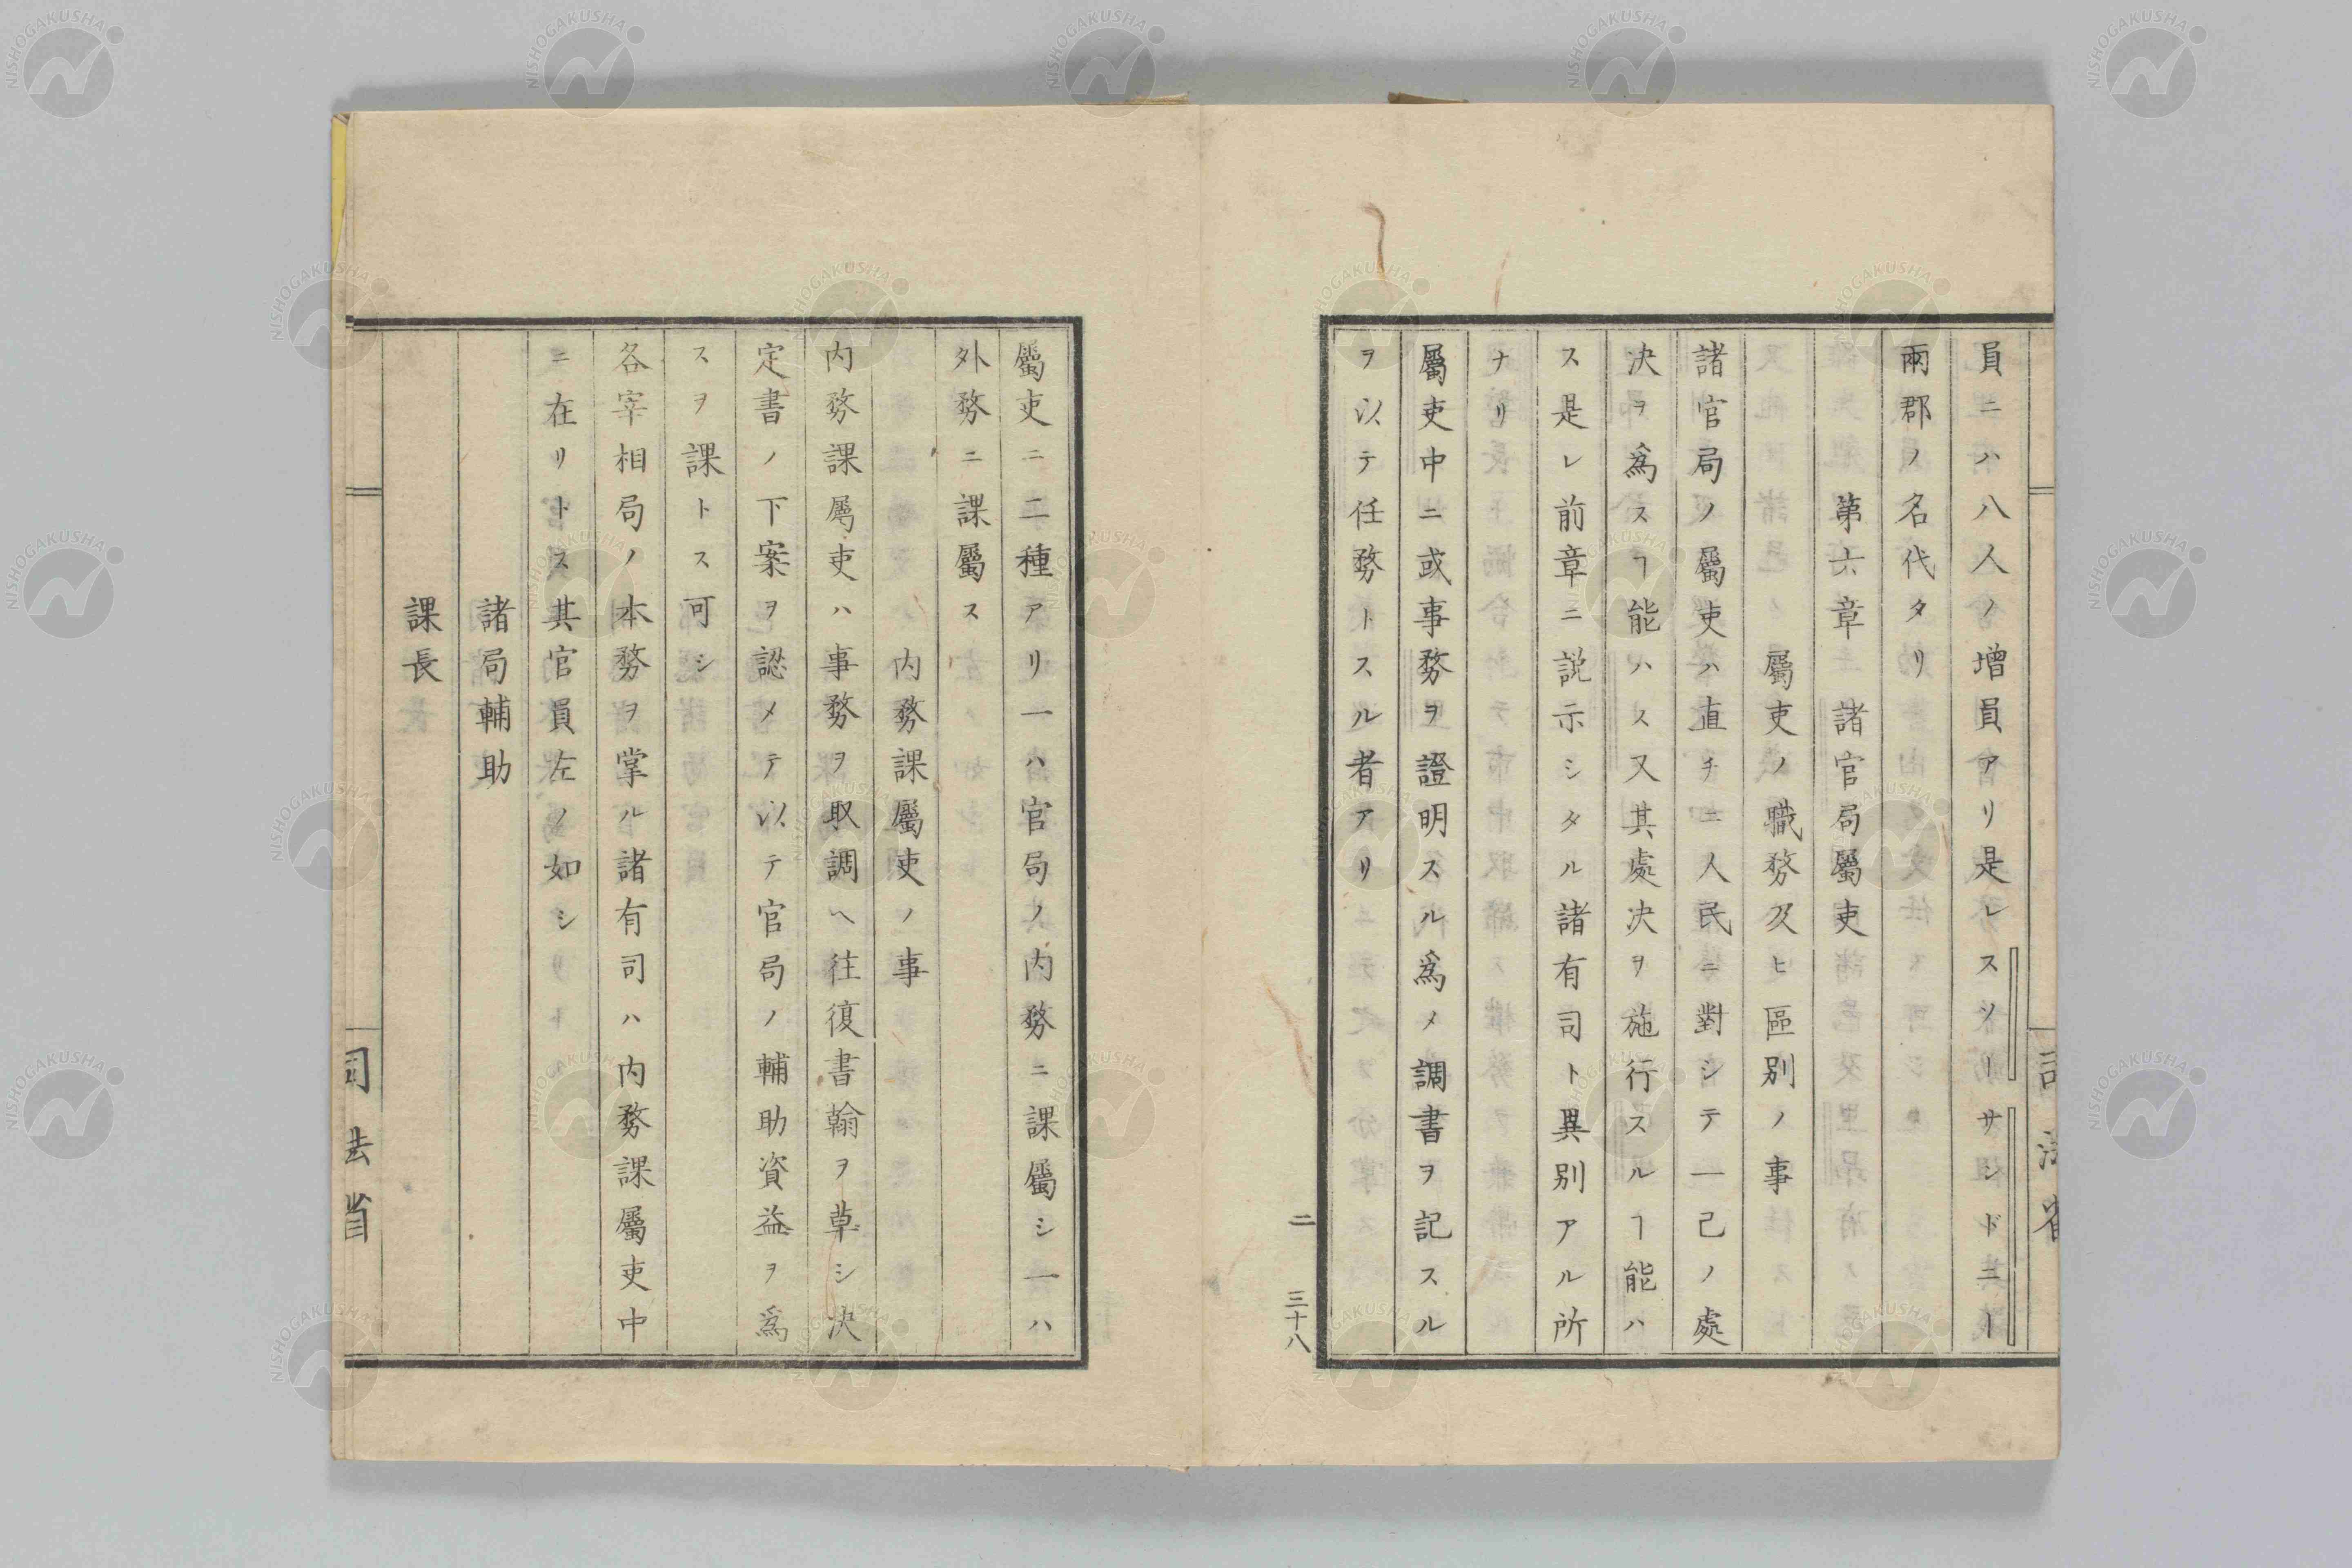 員ニハ八人ノ增員アリ是レスソーサシドニー
兩郡ノ名代タリ
第六章　諸官局屬吏
屬吏ノ職務及ヒ區別ノ事
諸官局ノ屬吏ハ直チニ人民ニ對シテ一己ノ處
决ヲ爲スヿ能ハス又其處决ヲ施行スルヿ能ハ
ス是レ前章ニ説示シタル諸有司ト異別アル所
ナリ
屬吏中ニ或事務ヲ證明スル爲メ調書ヲ記スル
ヲ以テ任務トスル者アリ
二　三十八
屬吏ニ二種アリ一ハ官局ノ内務ニ課屬シ一ハ
外務ニ課屬ス
内務課屬吏ノ事
内務課屬吏ハ事務ヲ取調ヘ往復書翰ヲ草シ决
定書ノ下案ヲ認メテ以テ官局ノ輔助資益ヲ爲
スヲ課トス可シ
各宰相局ノ本務ヲ掌ル諸有司ハ内務課屬吏中
ニ在リトス其官員左ノ如シ
諸局輔助
課長
司法省
NISHOGAKUSHA